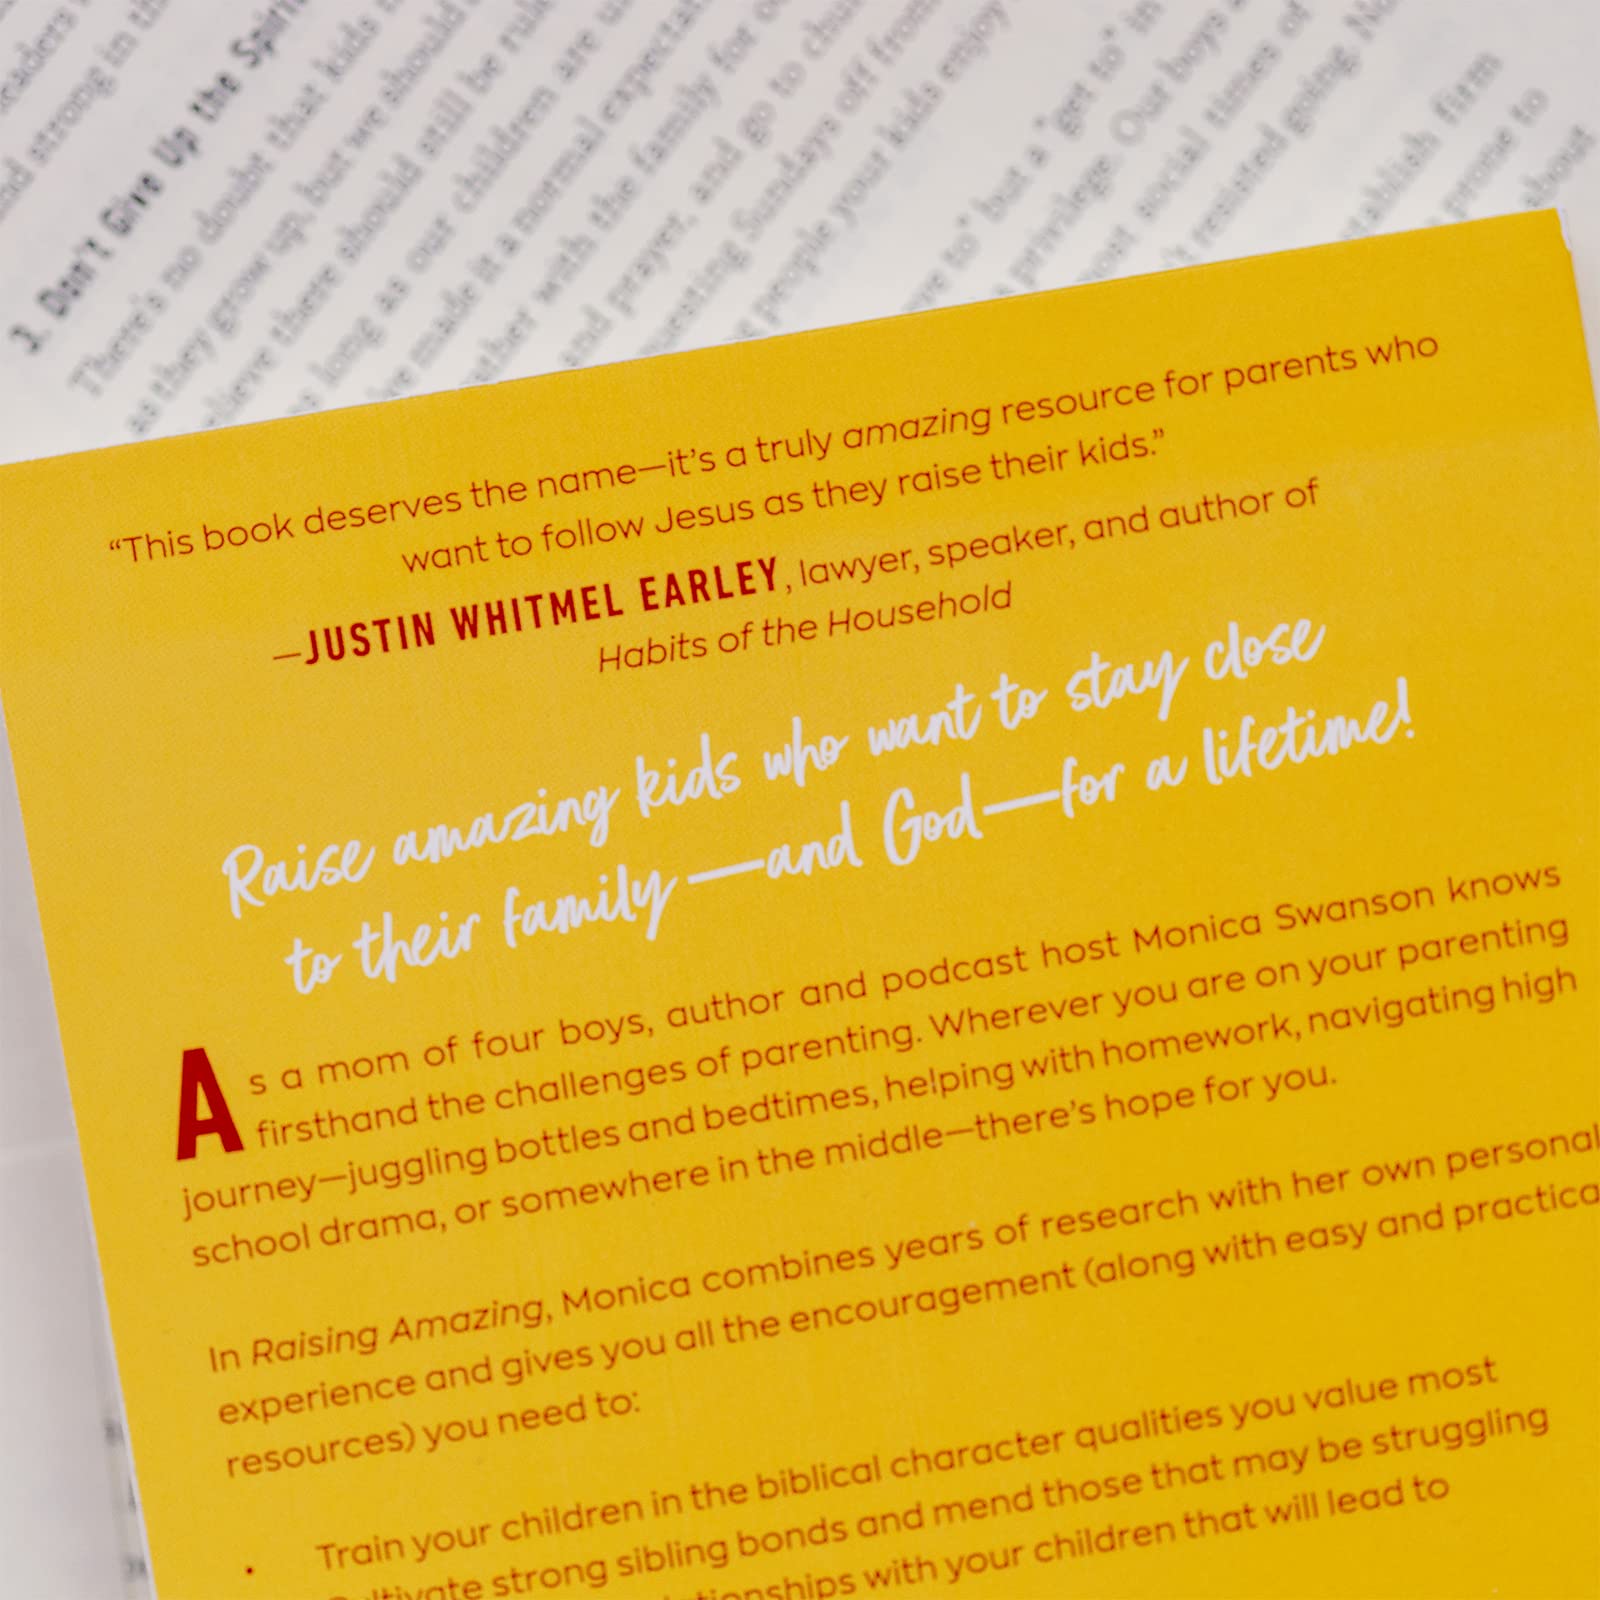 eaders
and strong in th
3. Don't Give Up the Spirit
There's no doubt that kids
as they grow up, but we should
elieve there should still be rule
s long as our children are u
've made it a normal expectat
ather with the family for
and prayer, and go to chur
questing Sundays off from
people your kids enjoy
ve to" but a "get to" in
privilege. Our boys
most social times of
't resisted going. No
stablish firm
prone to
about
“This book deserves the name—it’s a truly amazing resource for parents who
want to follow Jesus as they raise their kids.”
—JUSTIN WHITMEL EARLEY, lawyer, speaker, and author of
Habits of the Household
Raise amazing kids who want to stay close
to their family—and God—for a lifetime!
As a mom of four boys, author and podcast host Monica Swanson knows
firsthand the challenges of parenting. Wherever you are on your parenting
journey—juggling bottles and bedtimes, helping with homework, navigating high
school drama, or somewhere in the middle—there’s hope for you.
In Raising Amazing, Monica combines years of research with her own personal
experience and gives you all the encouragement (along with easy and practica
resources) you need to:
• Train your children in the biblical character qualities you value most
Cultivate strong sibling bonds and mend those that may be struggling
ationships with your children that will lead to